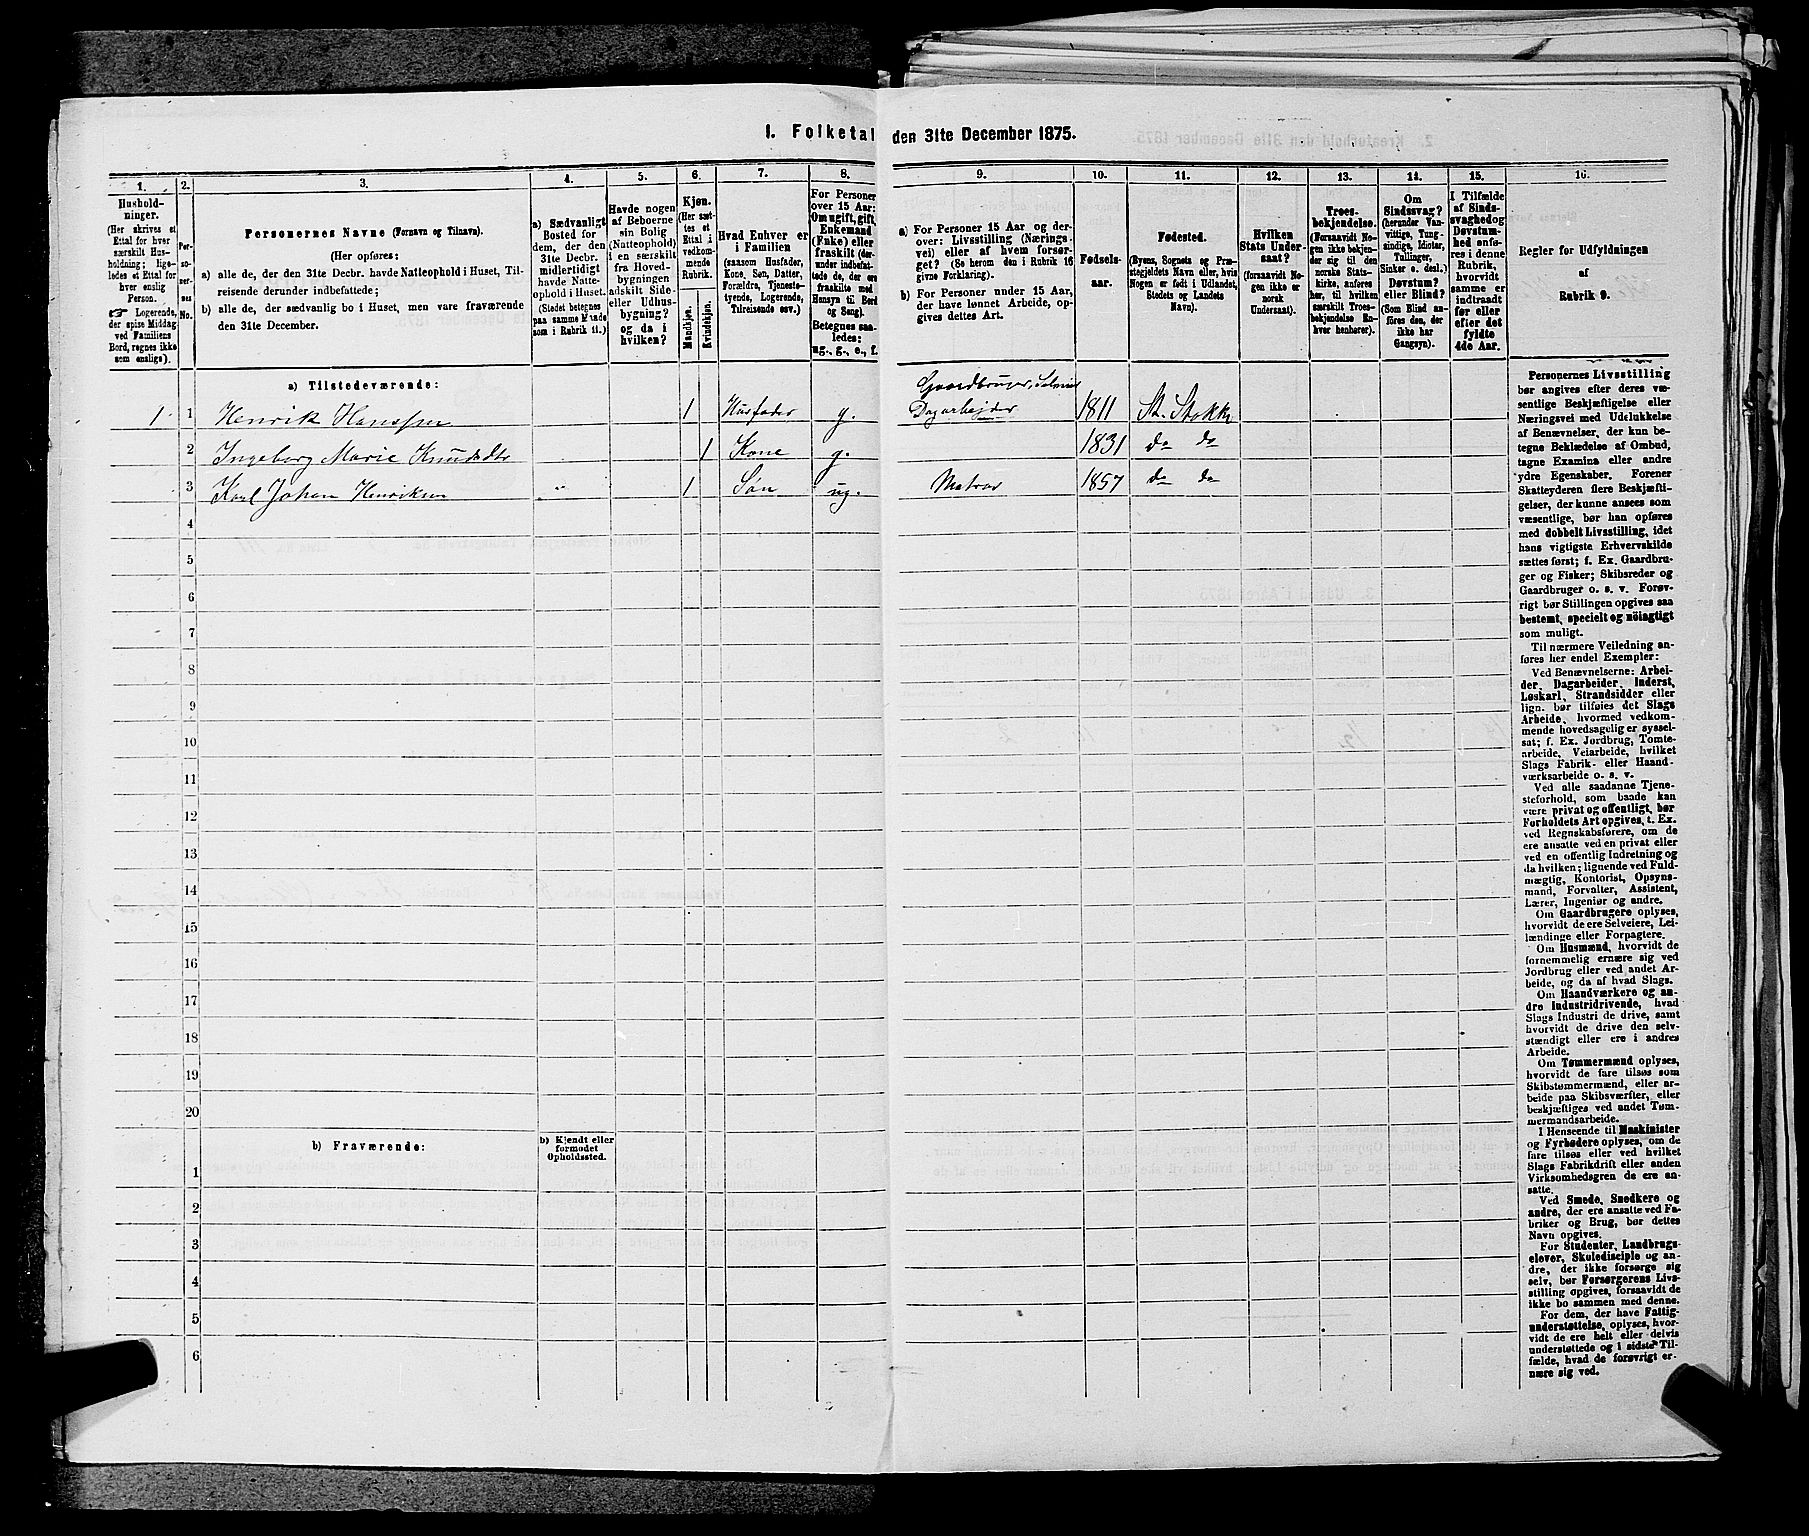 1. Folketal den 31te December 1875.
1.
2.
3.
4.
5.
6.
7.
8.
9.
10.
11.
12.
13.
14.
15.
16.
Hushold-
ninger.
(Her skrives et
Ettal for hver
særskilt Hus-
holdning; lige-
ledes et Ettal for
hver enslig
Person.
☞ Logerende,
der spise Middag
ved Familiens
Bord, regnes ikke
som enslige).
Per-
so-
ner-
nes
No.
Personernes Navne (Fornavn og Tilnavn).
(Her opføres:
a) alle de, der den 31te Decbr. havde Natteophold i Huset, Til-
reisende derunder indbefattede;
b) alle de, der sædvanlig bo i Huset, men vare fraværende
den 31te December.
a) Sædvanligt
Bosted for
dem, der den
31te Decbr.
midlertidigt
havde Natte-
ophold i Huset.
(Stedet betegnes
paa samme Maade
som i Rubrik 11.)
Havde nogen
af Beboerne
sin Bolig
(Natteophold)
i en særskilt
fra Hoved-
bygningen
adskilt Side-
eller Udhus-
bygning?
og da i
hvilken?
Kjøn.
(Her sæt-
tes et
Ettal i
vedkom-
mende
Rubrik.
Mandkjøn.
Kvindekjøn.
Hvad Enhver er
i Familien
(saasom Husfader,
Kone, Søn, Datter,
Forældre, Tjeneste-
tyende, Logerende,
Tilreisende osv.)
For Personer
over 15 Aar:
Om ugift, gift,
Enkemand
(Enke) eller
fraskilt (der-
under indbefat-
tede de, der ere
fraskilte med
Hensyn til Bord
og Seng).
Betegnes saa-
ledes:
ug., g., e., f.
a) For Personer 15 Aar og der-
over: Livsstilling (Nærings-
vei) eller af hvem forsør-
get? (Se herom den i Rubrik 16
givne Forklaring).
b) For Personer under 15 Aar,
der have lønnet Arbeide, op-
gives dettes Art.
Fødsels-
aar.
Fødested.
(Byens, Sognets og Præ-
stegjeldets Navn eller, hvis
Nogen er født i Udlandet,
Stedets og Landets
Navn).
Hvilken
Stats Under-
saat?
(forsaavidt No-
gen ikke er
norsk
Undersaat).
Troes-
bekjendelse.
(Forsaavidt No-
gen ikke bekjen-
der sig til den
norske Stats-
kirke, anføres
her, til hvilken
særskilt Troes-
bekjendelse En-
hver henhører).
Om
Sindssvag?
(herunder Van-
vittige, Tung-
sindige, Idioter,
Tullinger,
Sinker o. desl.)
Døvstum?
eller Blind?
(Som Blind an-
føres den, der
ikke har
Gangsyn).
I Tilfælde
af Sinds-
svaghed og
Døvstum-
hed anfø-
res i denne
Rubrik,
hvorvidt
samme er
indtraadt
før eller
efter det
fyldte
4de Aar.
Regler for Udfyldningen
af
Rubrik 9.
a) Tilstedeværende:
Gaardbruger, Selveier
1 1 Henrik Hanssen 1 Husfader g. Dagarbejder 1811 St. Stokke
2 Ingeborg Marie Knudsdtr 1 Kone g. 1831 do do
3 Karl Johan Henriksen " 1 Søn ug. Matros 1857 do do
4
5
6
7
8
9
10
11
12
13
14
15
16
17
18
19
20
b) Fraværende:
b) Kjendt eller
formodet
Opholdssted.
1
2
3
4
5
6
Personernes Livsstilling
bør angives efter deres væ-
sentlige Beskjæftigelse eller
Næringsvei med Udelukkelse
af Benævnelser, der kun be-
tegne Beklædelse af Ombud,
tagne Examina eller andre
ydre Egenskaber. Forener
Skatteyderen flere Beskjæfti-
gelser, der kunne ansees som
væsentlige, bør han opføres
med dobbelt Livsstilling, idet
hans vigtigste Erhvervskilde
sættes først; f. Ex. Gaardbru-
ger og Fisker; Skibsreder og
Gaardbruger o. s. v. Forøv-
rigt bør Stillingen opgives saa
bestemt, specielt og nöiagtigt
som muligt.
Til nærmere Veiledning an-
føres her endel Exempler:
Ved Benævnelserne: Arbei-
der, Dagarbeider, Inderst,
Løskarl, Strandsidder eller
lign. bør tilføies det Slags
Arbeide, hvormed vedkom-
mende hovedsagelig er syssel-
sat; f. Ex. Jordbrug, Tomte-
arbeide, Veiarbeide, hvilket
Slags Fabrik- eller Haand-
værksarbeide o. s. v.
Ved alle saadanne Tjene-
steforhold, som baade kan
være privat og offentligt, bør
Forholdets Art opgives, t. Ex.
ved Regnskabsførere, om de
ere ansatte ved en privat eller
ved en offentlig Indretning og
da hvilken; lignende ved Fuld-
mægtig, Kontorist, Opsyns-
mand, Forvalter, Assistent,
Lærer, Ingeniør og andre.
Om Gaardbrugere oplyses,
hvorvidt de ere Selveiere, Lei-
lændinge eller Forpagtere.
Om Husmænd, hvorvidt de
fornemmelig ernære sig ved
Jordbrug eller ved andet Ar-
beide, og da af hvad Slags.
Om Haandværkere og an-
dre Industridrivende, hvad
Slags Industri de drive, samt
hvorvidt de drive den selv-
stændigt eller ere i andres
Arbeide.
Om Tømmermænd oplyses,
hvorvidt de fare tilsøs som
Skibstømmermænd, eller ar-
beide paa Skibsværfter, eller
beskjæftiges ved andet Tøm-
mermandsarbeide.
I Henseende til Maskinister
og Fyrbødere oplyses, om de
fare tilsøs eller ved hvilket
Slags Fabrikdrift eller anden
Virksomhedsgren de ere an-
satte.
Ved Smede, Snedkere og
andre, der ere ansatte ved Fa-
briker og Brug, bør dettes
Navn opgives.
For Studenter, Landbrugs-
elever, Skoledisciple og an-
dre, der ikke forsørge sig
selv, bør Forsørgerens Livs-
stilling opgives, forsaavidt de
ikke bo sammen med denne.
For dem, der have Fattig-
understøttelse, oplyses, hvor-
vidt de ere helt eller delvis
understøttede og i sidste Til-
fælde, hvad de forøvrigt er-
nære sig ved.